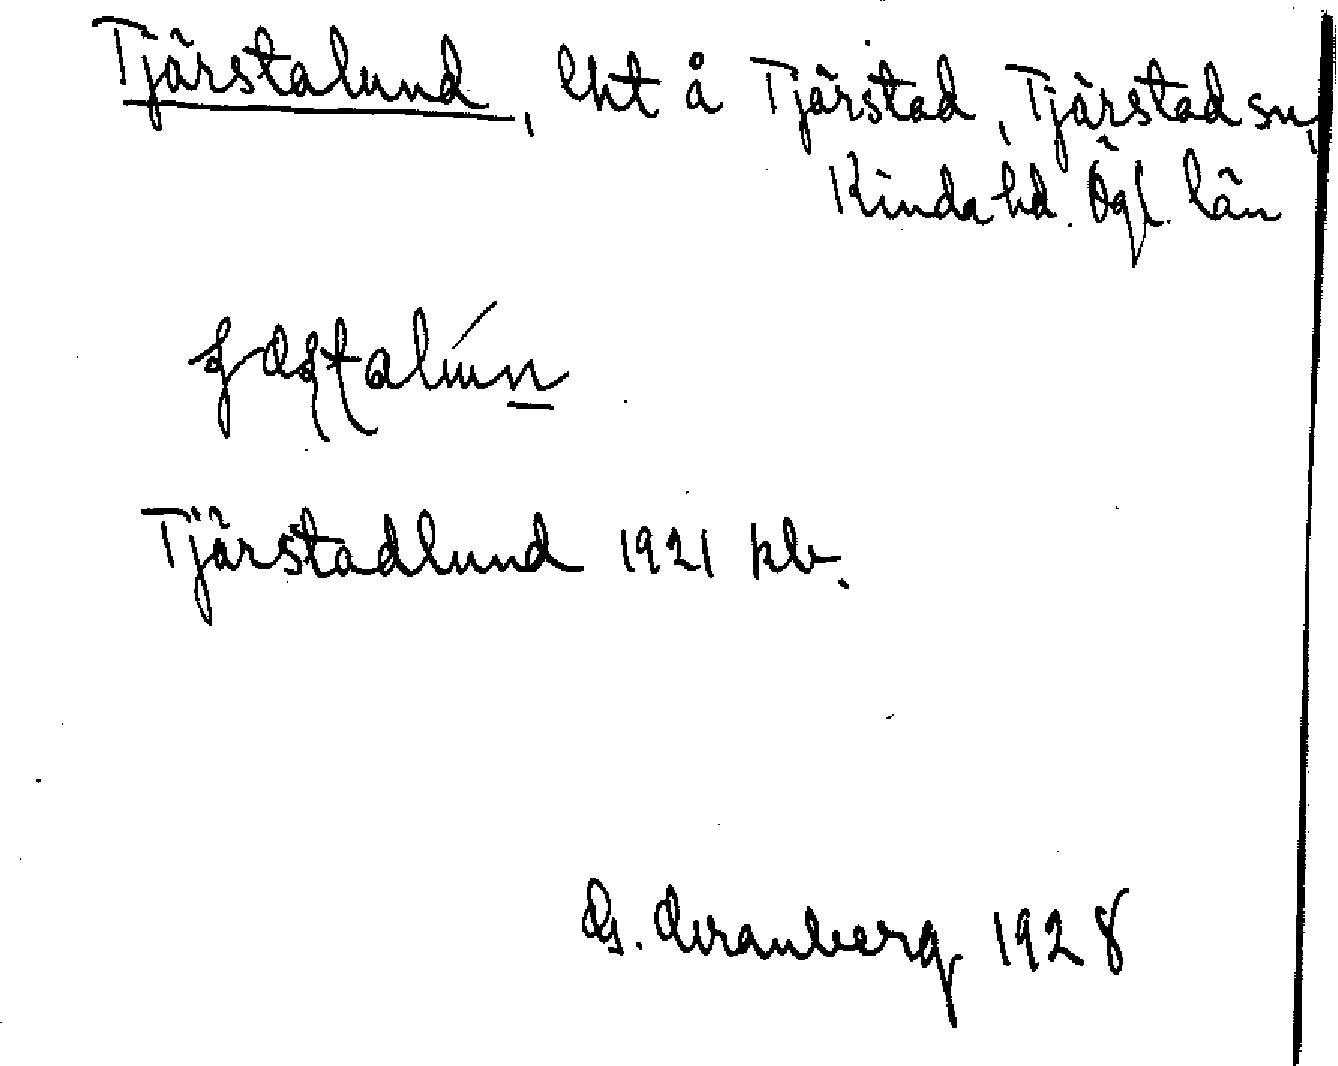 Tjärstalund, lht å Tjärstad, Tjärstad sn,
Kinda hd. Ögl. län
Tjärstadlund 1921 kb.
G. Granberg 1928